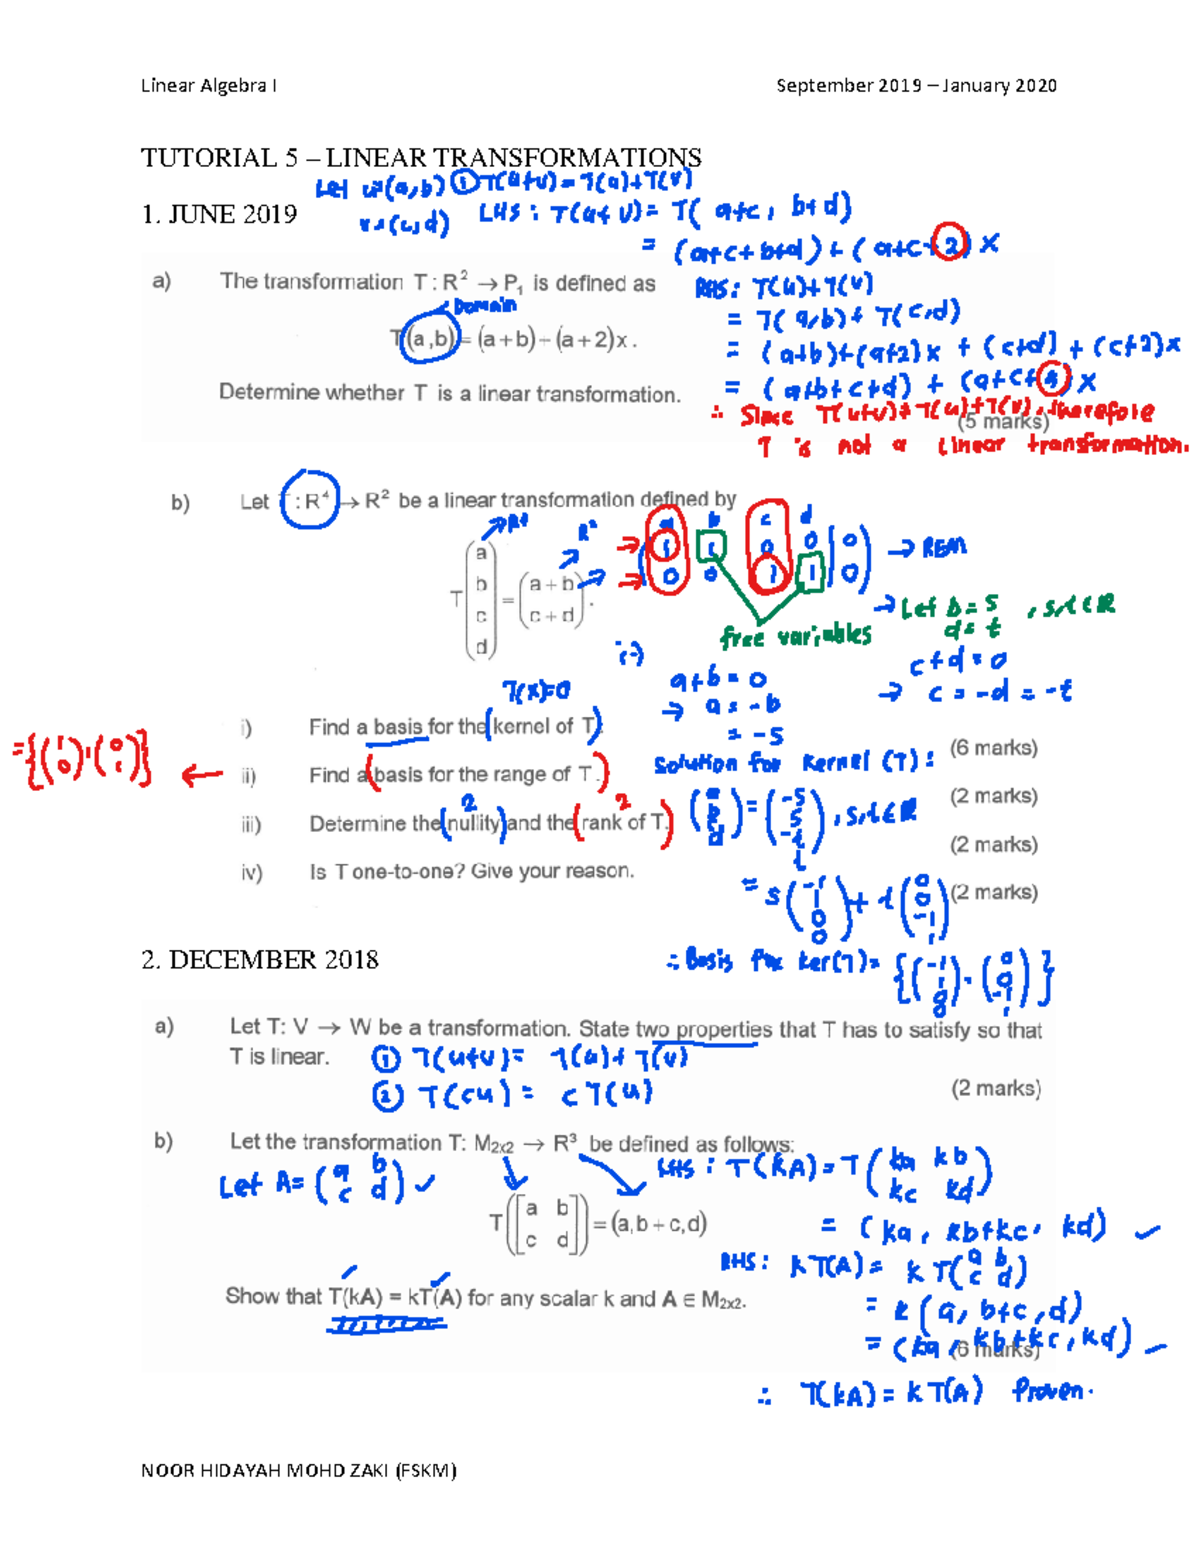 Linear Algebra I September 2019 – January 2020
TUTORIAL 5 – LINEAR TRANSFORMATIONS
Let u=(a,b) ① T(u+v)=T(u)+T(v)
1. JUNE 2019
v=(c,d) LHS : T(u+v)= T( a+c , b+d)
= (a+c+b+d)+(a+c+2)x
a) The transformation T : R² → P₁ is defined as
RHS: T(u)+T(v)
Domain
= T(a,b)+ T(c,d)
T(a,b)=(a+b)−(a+2)x.
= (a+b)+(a+2)x + (c+d) + (c+2)x
Determine whether T is a linear transformation.
= (a+b+c+d) + (a+c+4)x
∴ Since T(u+v)≠T(u)+T(v), therefore
(5 marks)
T is not a linear transformation.
b) Let T : R⁴ → R² be a linear transformation defined by
R⁴ R²
a b c d
1 1 0 0 | 0
0 0 1 1 | 0
→ REM
T(a b c d) = (a+b c+d).
→ Let b=s , s,t∈R
d=t
free variables
a+b=0
→ a=-b
=-s
c+d=0
→ c=-d=-t
T(x)=0
i) Find a basis for the kernel of T.
(6 marks)
={(1 0),(0 1)} ← ii) Find a basis for the range of T.
(2 marks)
2 2
iii) Determine the nullity and the rank of T.
(2 marks)
iv) Is T one-to-one? Give your reason.
(2 marks)
Solution for Kernel (T) :
(a b d) = (-s s -t t) , s,t∈R
= s(-1 1 0 0) + t(0 0 -1 1)
∴ Basis for ker(T)= {(-1 1 0), (0 0 -1 1)}
2. DECEMBER 2018
a) Let T: V → W be a transformation. State two properties that T has to satisfy so that
T is linear.
① T(u+v)= T(u)+T(v)
② T(cu) = cT(u)
(2 marks)
b) Let the transformation T: M₂ₓ₂ → R³ be defined as follows:
Let A=(a b c d) ✓
T([a b c d])=(a,b+c,d)
LHS : T(kA)=T(ka kb kc kd)
= (ka, kb+kc, kd) ✓
RHS: kT(A)= kT(a b c d)
Show that T(kA) = kT(A) for any scalar k and A ∈ M₂ₓ₂.
= k(a, b+c, d)
= (ka, kb+kc, kd) ✓
(6 marks)
∴ T(kA)=kT(A) Proven.
NOOR HIDAYAH MOHD ZAKI (FSKM)